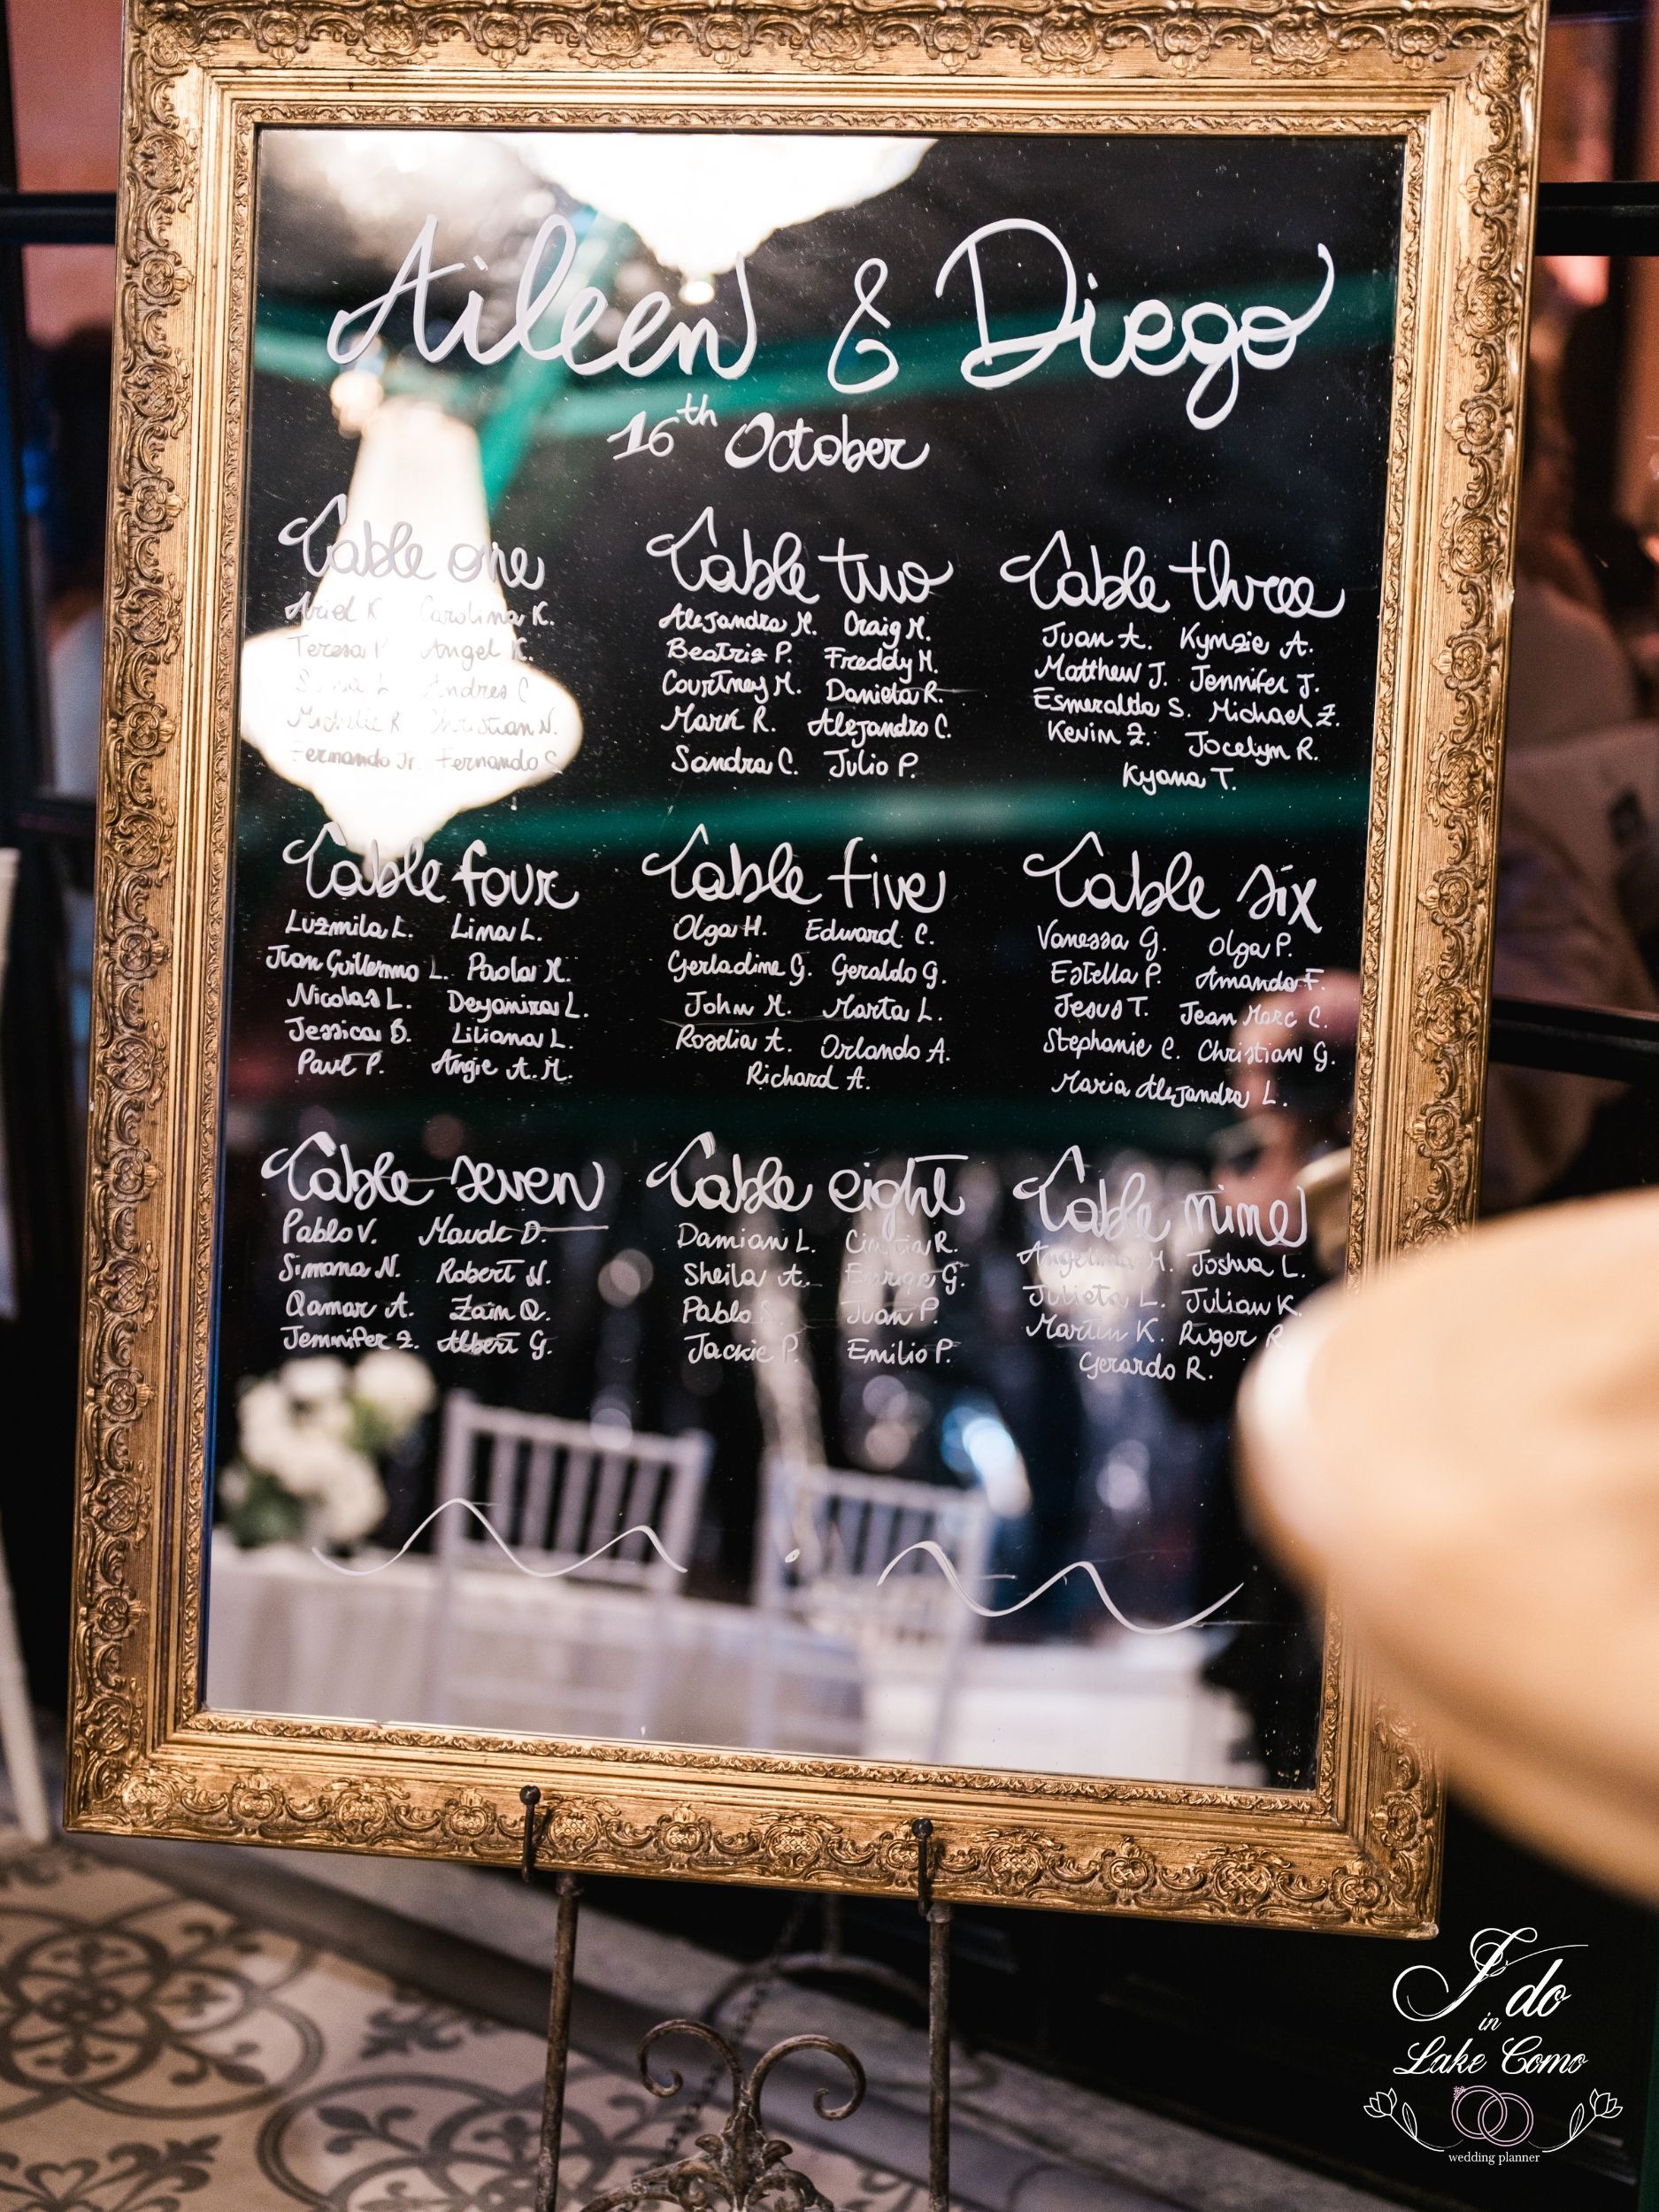 Aileen & Diego
16th October
Table one
Ariel K. Carolina K.
Teresa P. Angel K.
Andres C
Michelle R Christian N.
Fernando Jr. Fernando C
Table two
Alejandra M. Craig M.
Beatriz P. Freddy M.
Courtney M. Daniela R.
Mark R. Alejandro C.
Sandra C. Julio P.
Table three
Juan A. Kymzie A.
Matthew J. Jennifer J.
Esmeralda S. Michael Z.
Kevin Z. Jocelyn R.
Kyana T.
Table four
Luzmila L. Lina L.
Juan Guillermo L. Paola M.
Nicolas L. Deyanira L.
Jessica B. Liliana L.
Paul P. Angie A. M.
Table five
Olga H. Edward C.
Gerladine G. Geraldo G.
John M. Marta L.
Roselia A. Orlando A.
Richard A.
Table six
Vanessa G. Olga P.
Estella P. Amanda F.
Jesus T. Jean Marc C.
Stephanie C. Christian G.
Maria Alejandra L.
Table seven
Pablo V. Maude D.
Simona N. Robert N.
Qamar A. Zain Q.
Jennifer Z. Albert G.
Table eight
Damian L. Cintia R.
Sheila A. G.
Pablo S. Juan P.
Jackie P. Emilio P.
Table nine
Angelina M. Joshua L.
Julieta L. Julian K.
Martin K. Roger R
Gerardo R.
I do
in
Lake Como
wedding planner